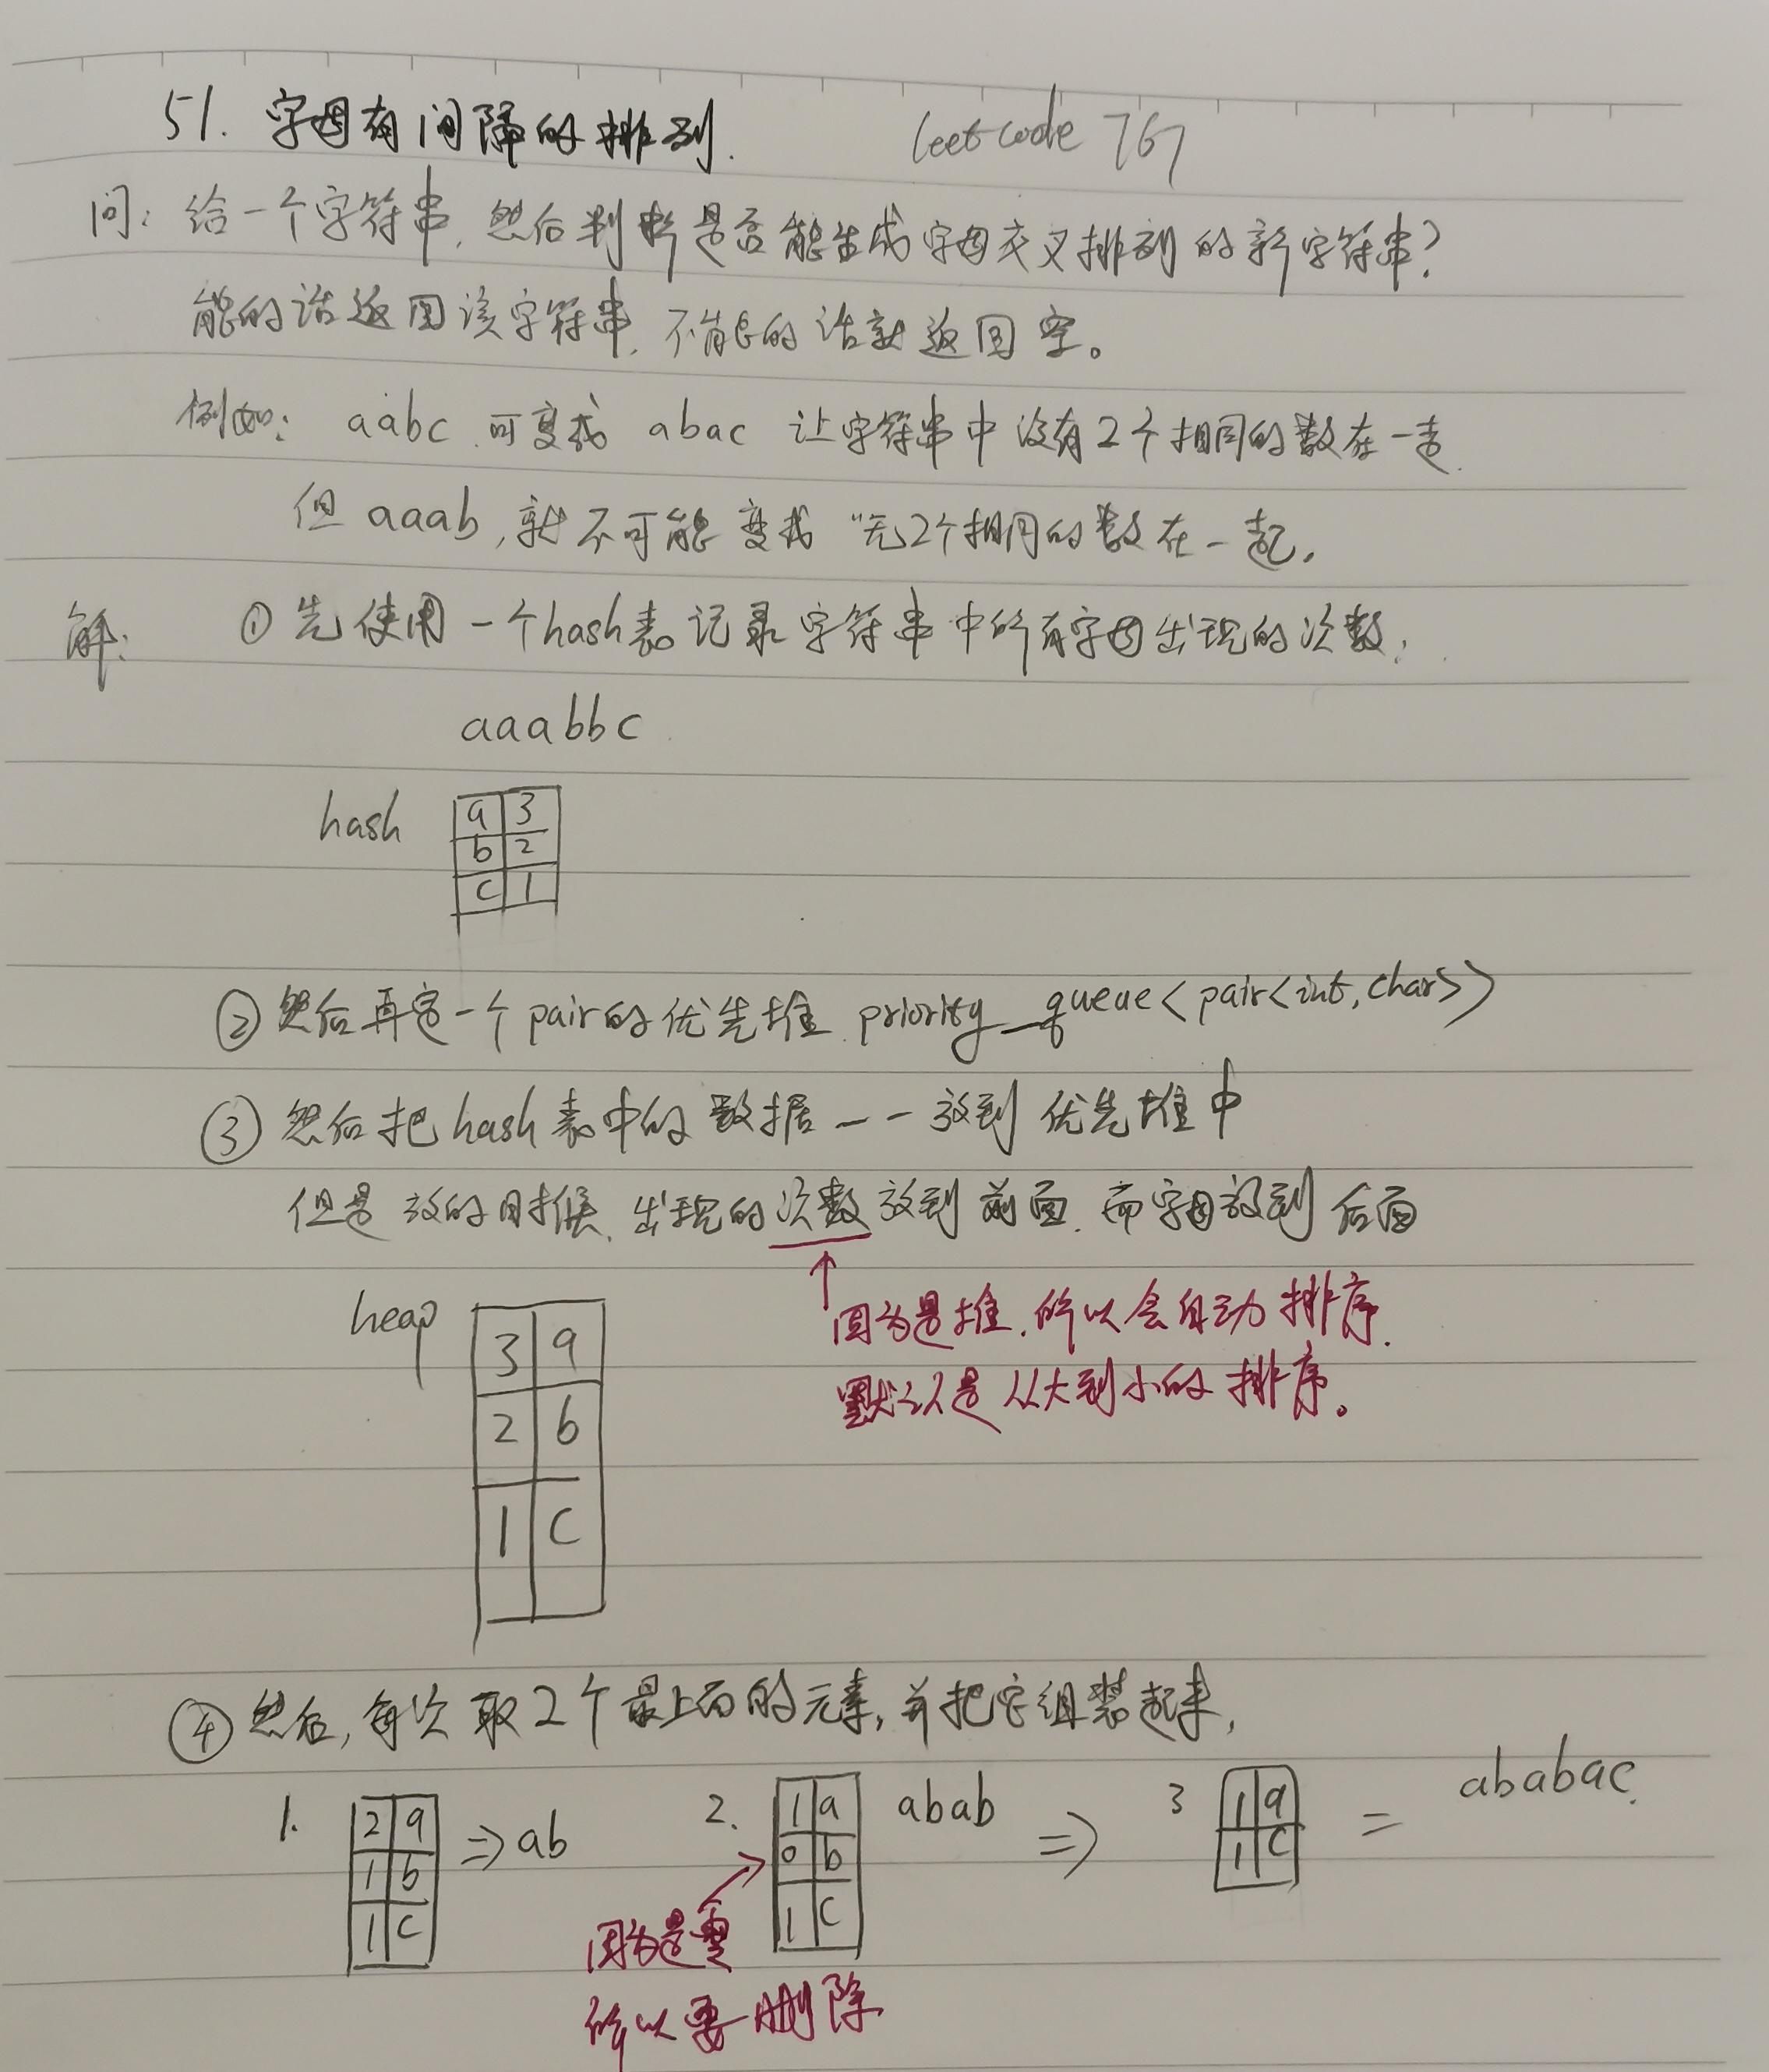 51. 字母有间隔的排列. leetcode 767
问: 给一个字符串, 然后判断是否能生成字母交叉排列的新字符串?
能的话返回该字符串, 不能的话就返回空。
例如: aabc 可变成 abac 让字符串中没有2个相同的数在一起.
但 aaab, 就不可能变成 "无2个相同的数在一起.
解: ① 先使用一个hash表记录字符串中所有字母出现的次数.
aaabbc
hash
a 3
b 2
c 1
② 然后再定一个pair的优先堆 priority_queue<pair<int,char>>
③ 然后把hash表中的数据一一放到优先堆中
但是放的时候, 出现的次数放到前面, 而字母放到后面
因为是堆, 所以会自动排序.
默认是从大到小的排序。
heap
3 a
2 b
1 c
④ 然后, 每次取2个最上面的元素, 并把字组装起来,
1. 2 a
1 b
1 c
=> ab
2. 1 a
0 b
1 c
abab =>
3 1 a
1 c
= ababac.
因为是零
所以要删除